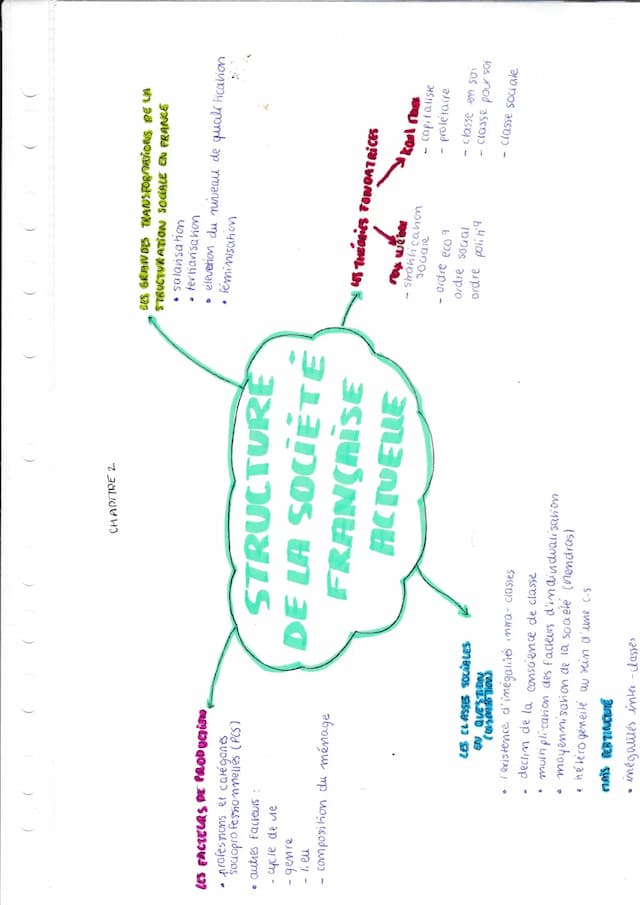 CHAPITRE 2
STRUCTURE
DE LA SOCIÉTÉ
FRANÇAISE
ACTUELLE
LES FACTEURS DE PRODUCTION
• professions et catégories
socioprofessionnelles (PCS)
• autres facteurs :
- cycle de vie
- genre
- lieu
- composition du ménage
LES GRANDES TRANSFORMATIONS DE LA
STRUCTURATION SOCIALE EN FRANCE
• salarisation
• tertiarisation
• élévation du niveau de qualification
• féminisation
LES CLASSES SOCIALES
EN QUESTION
• l'existence d'inégalités intra-classes
• declin de la conscience de classe
• multiplication des facteurs d'individualisation
• moyennisation de la société (Mendras)
• hétérogénéité au sein d'une CS
MAIS PERTINENTE
• inégalités inter-classes
LES THÉORIES FONDATRICES
Max Weber
- stratification
sociale
- ordre eco q
ordre social
ordre politi q
Karl Marx
- capitaliste
- prolétaire
- classe en soi
- classe pour soi
- classe sociale